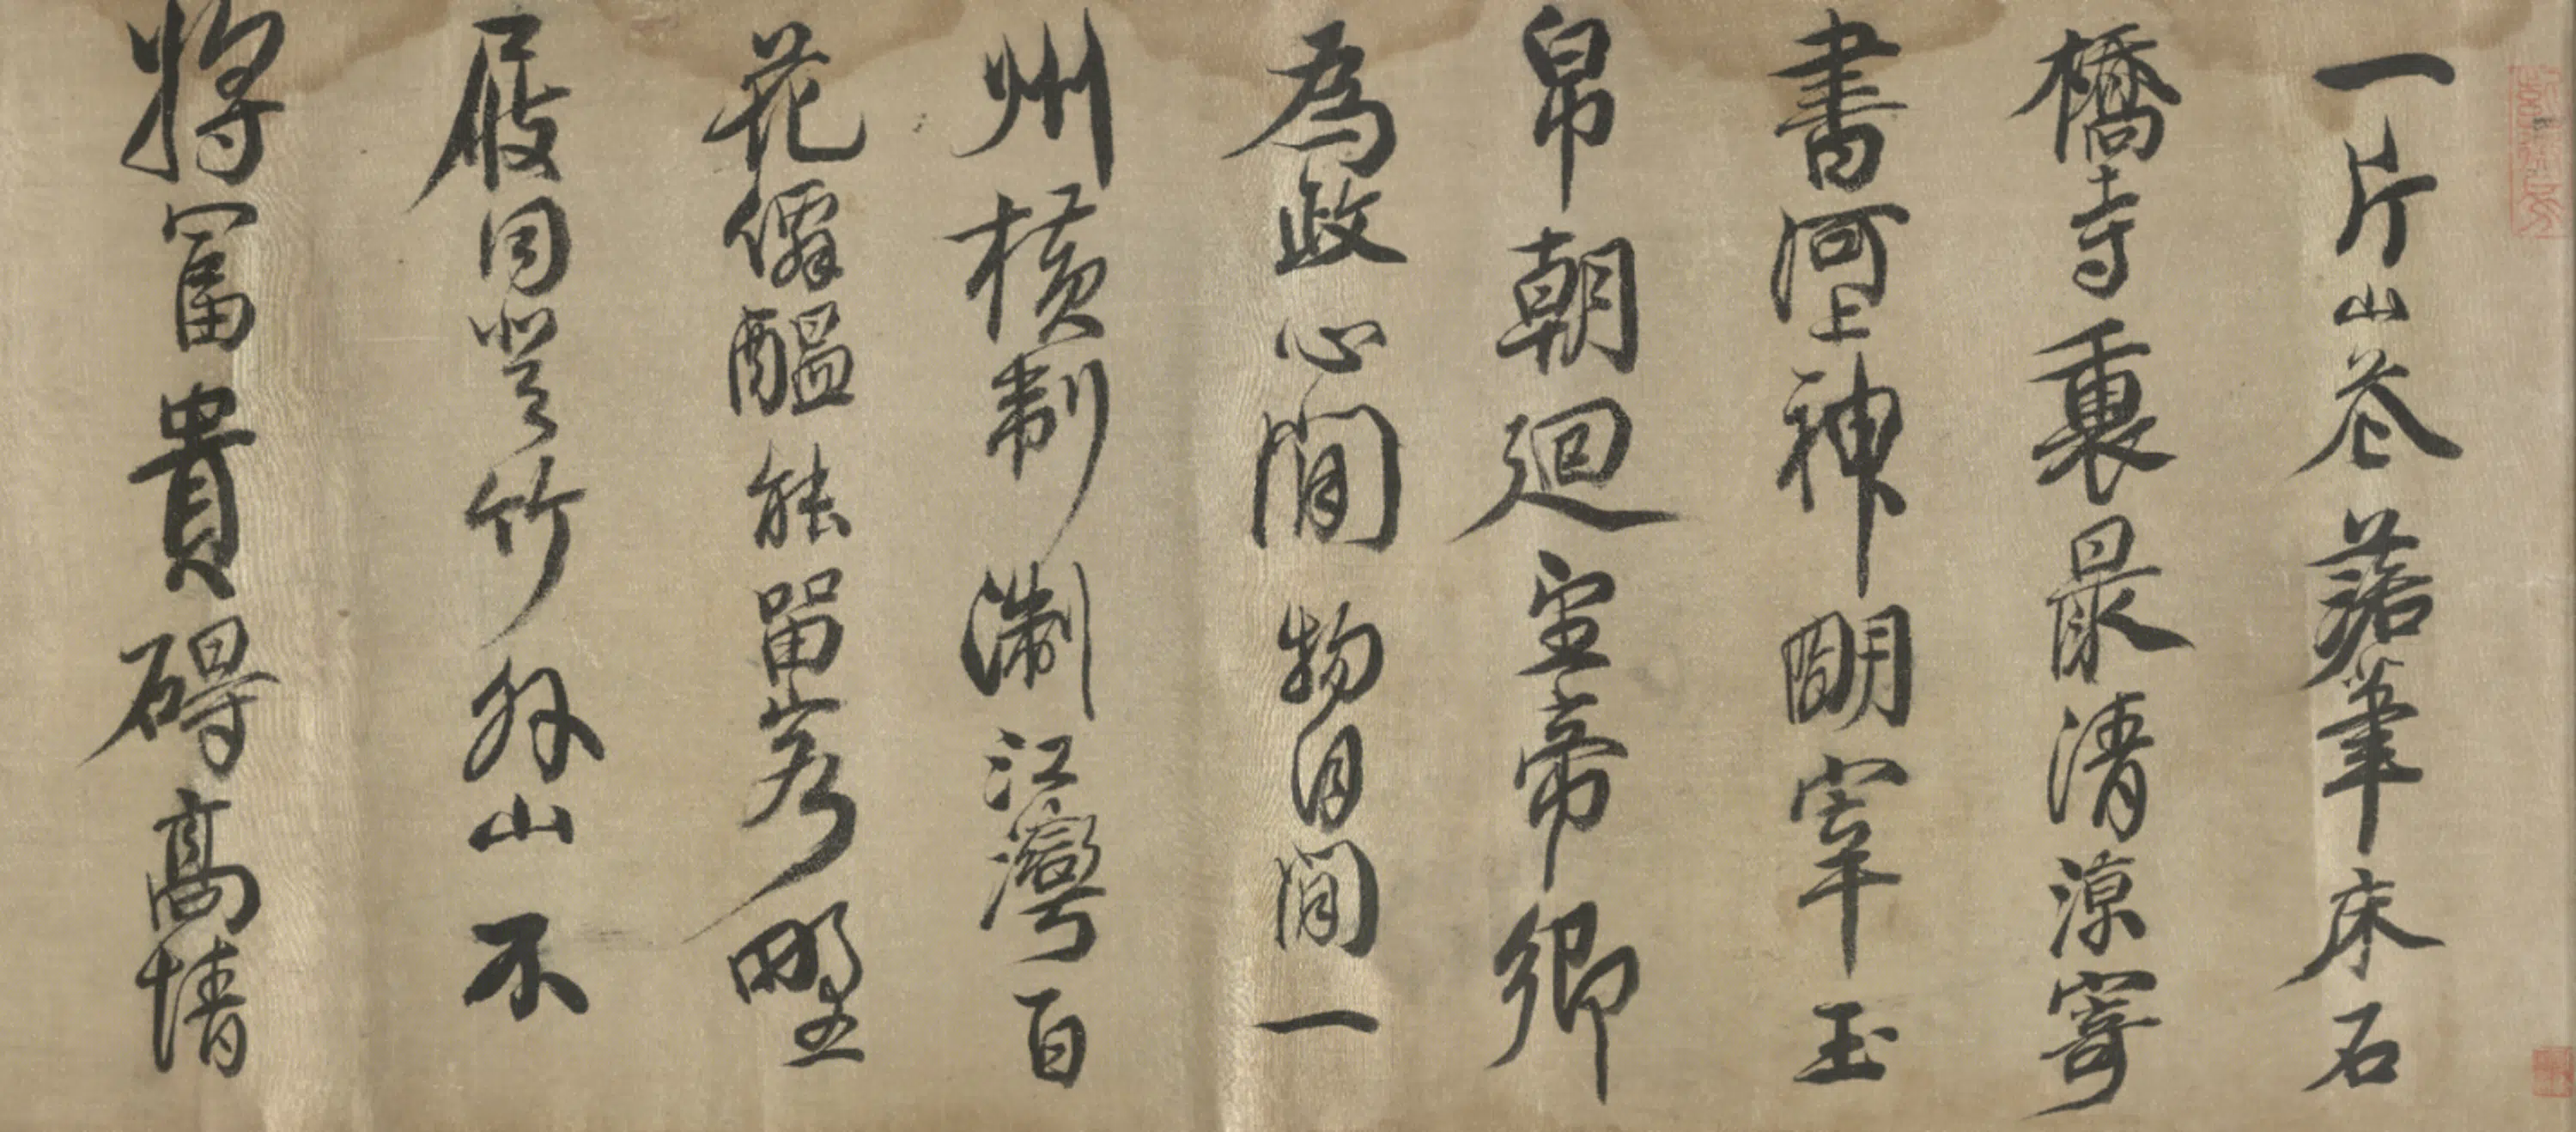 一片山花落筆床石
橋寺裏最清涼寄
書河上神明宰玉
帛朝迴望帝鄉
為政心閒物自閒一
州橫制淛江灣百
花僊醞能留客野
屐同登竹外山不
將富貴礙高情